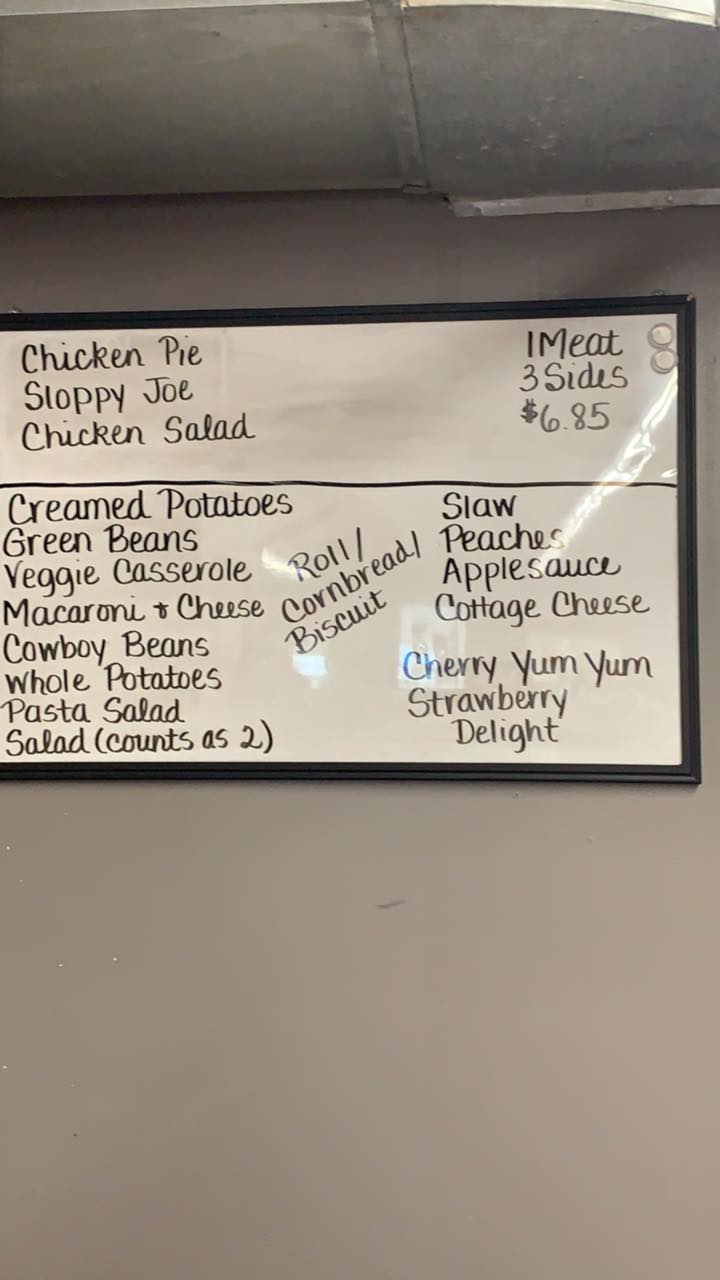 Chicken Pie
Sloppy Joe
Chicken Salad
1 Meat
3 Sides
$6.85
Creamed Potatoes
Green Beans
Veggie Casserole
Macaroni & Cheese
Cowboy Beans
Whole Potatoes
Pasta Salad
Salad (counts as 2)
Roll/
Cornbread/
Biscuit
Slaw
Peaches
Applesauce
Cottage Cheese
Cherry Yum Yum
Strawberry
Delight